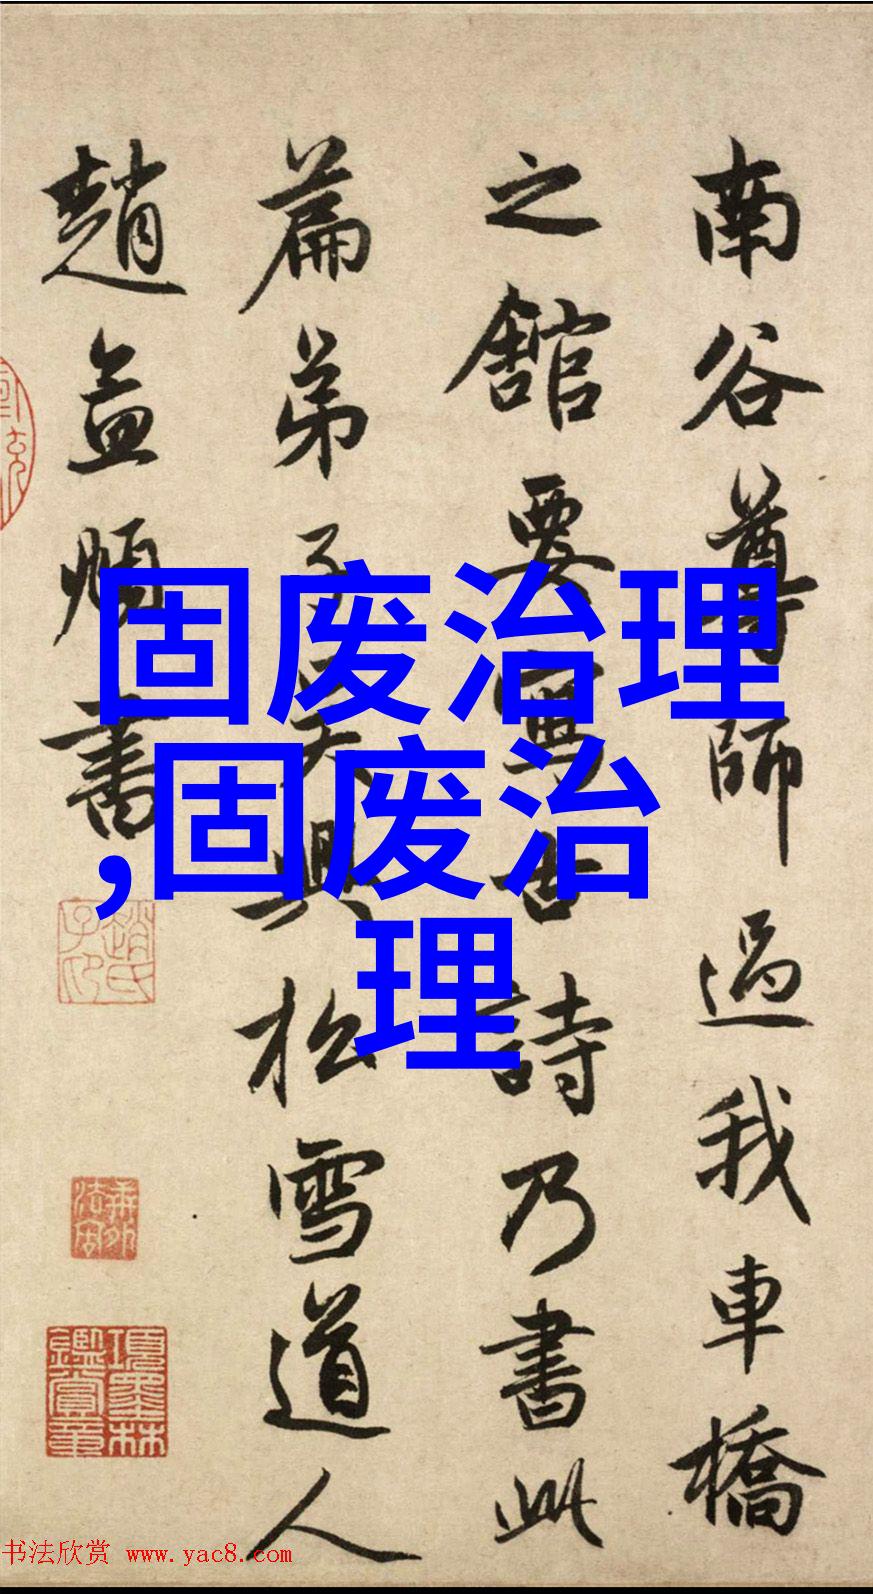 固废治理
,固废治
理
南谷尊師過我車橋
之舘要寫古詩乃書此
篇弟子吳興松雪道人
趙孟頫書
項墨林鑑賞章
书法欣赏 www.yac8.com